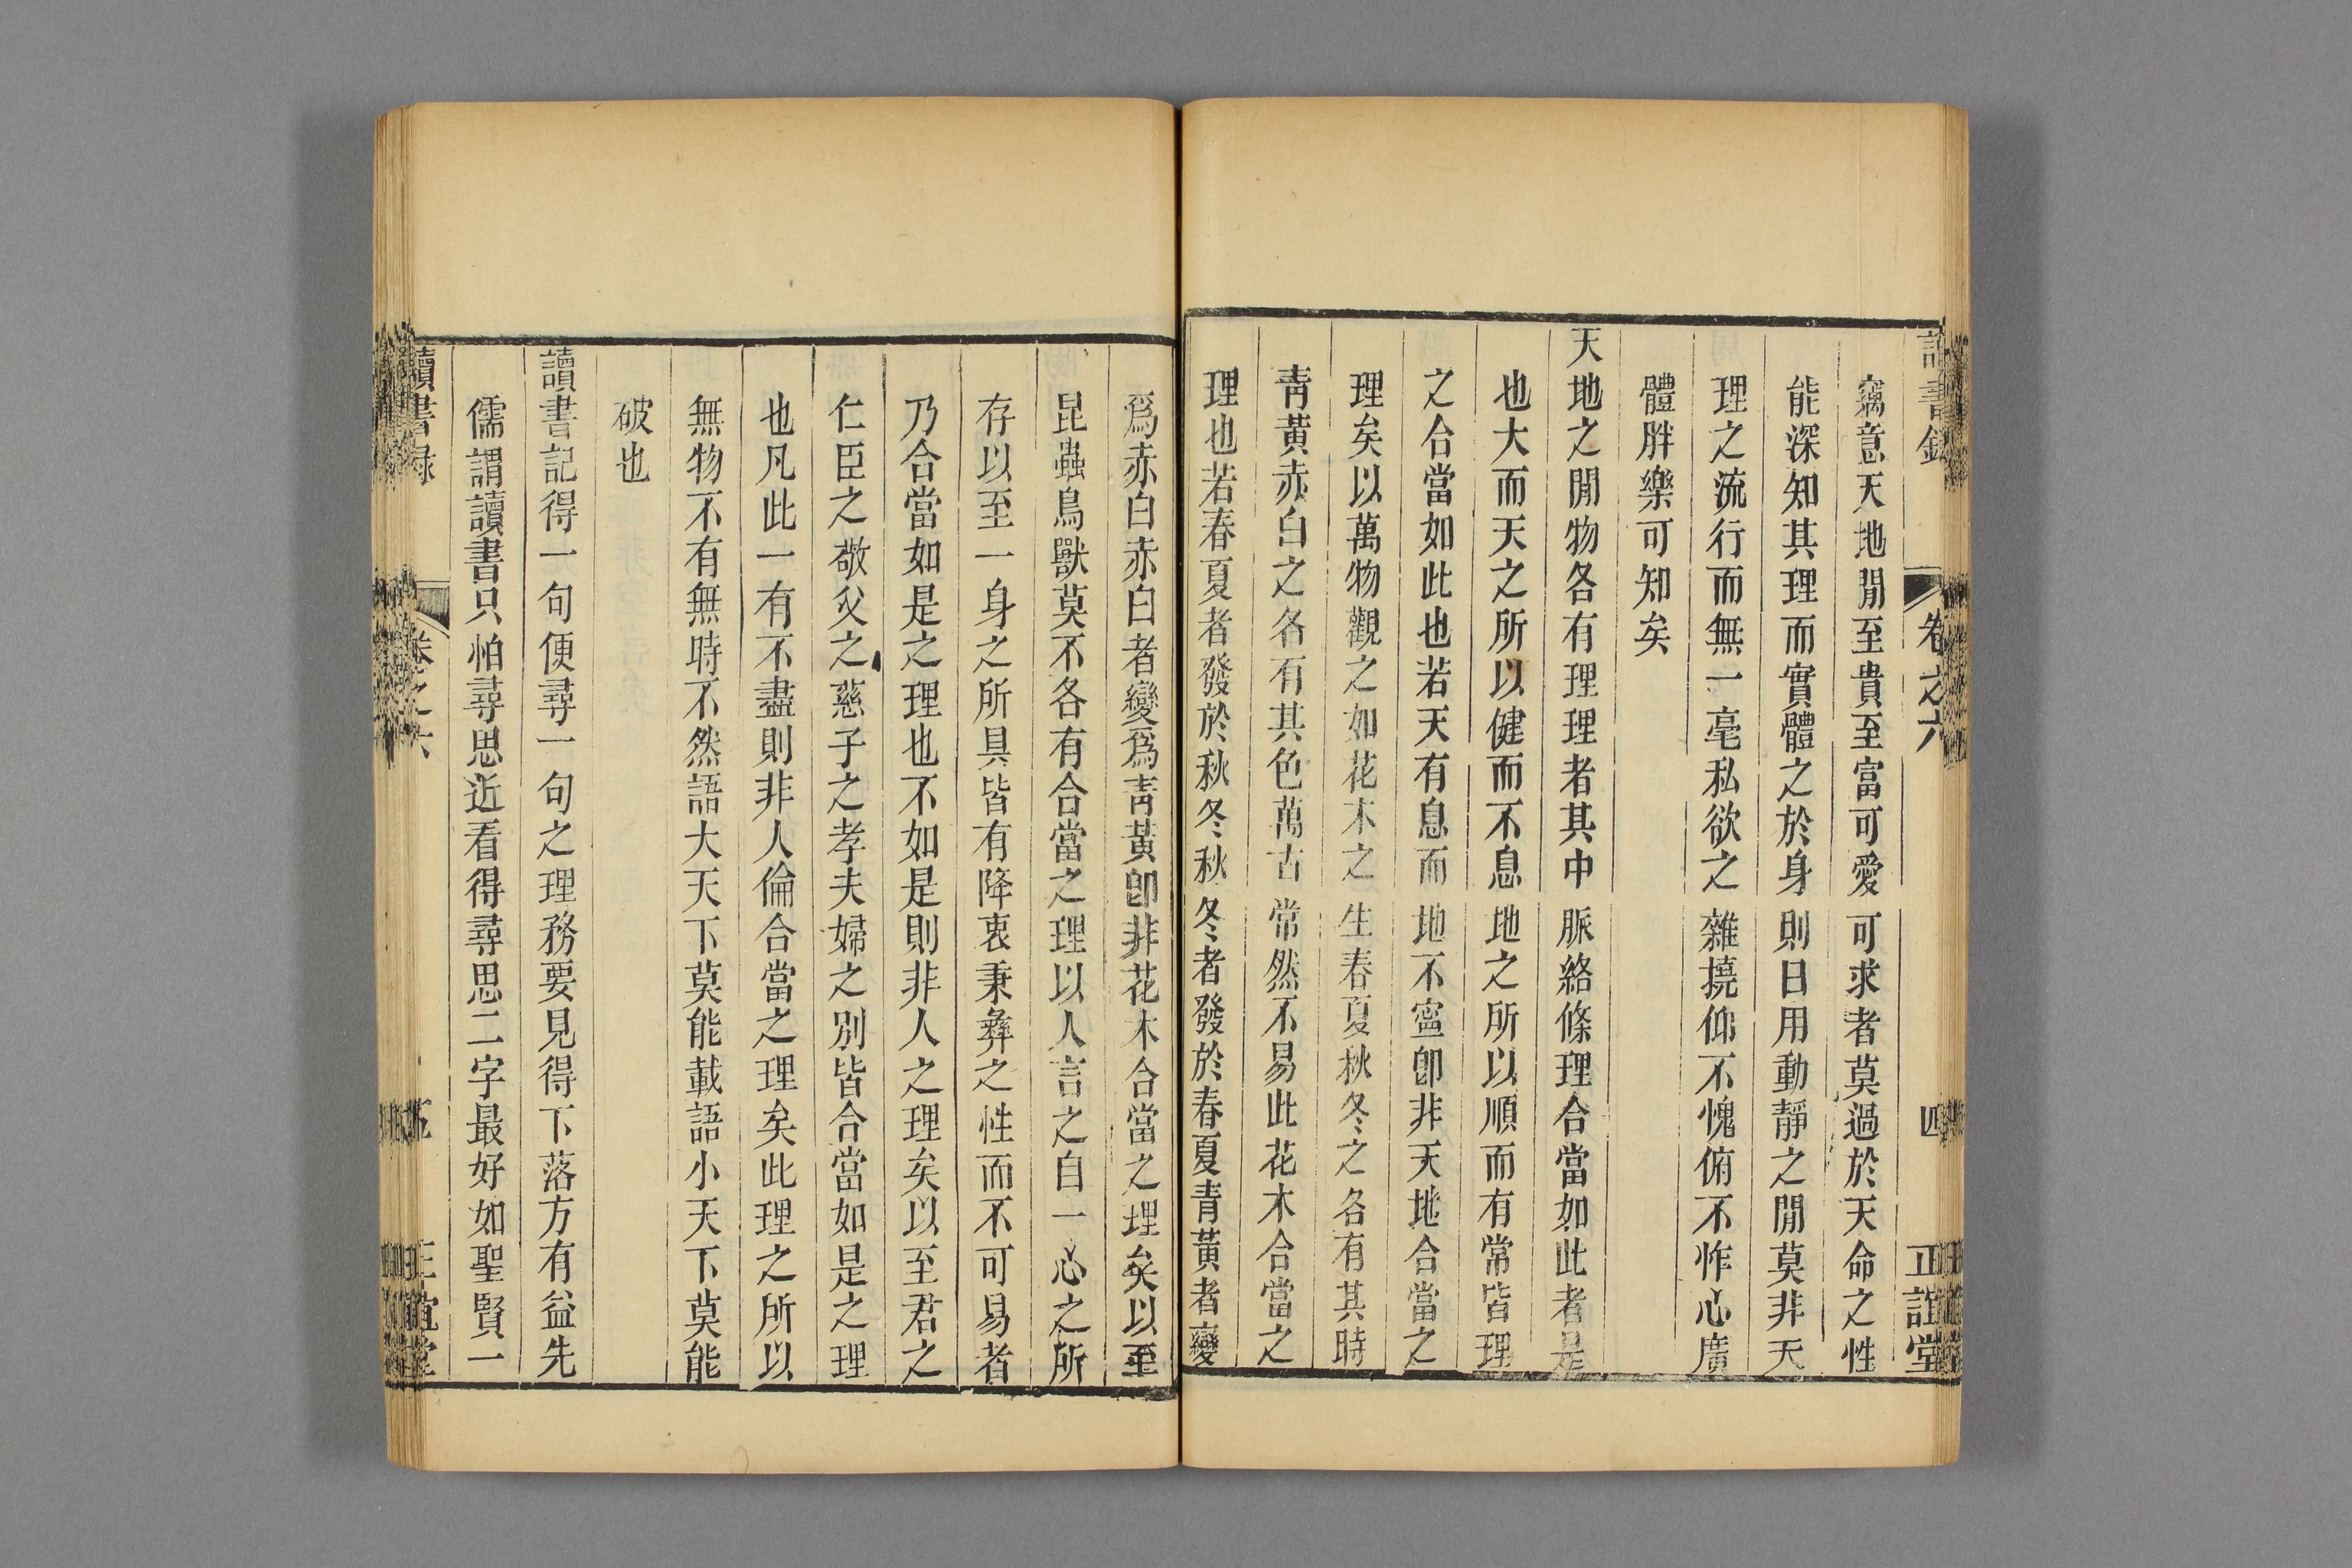 讀書錄 卷之六 四 正誼堂
竊意天地閒至貴至富可愛可求者莫過於天命之性
能深知其理而實體之於身則日用動靜之閒莫非天
理之流行而無一毫私欲之雜撓仰不愧俯不怍心廣
體胖樂可知矣
天地之閒物各有理理者其中脈絡條理合當如此者是
也大而天之所以健而不息地之所以順而有常皆理
之合當如此也若天有息而地不寧卽非天地合當之
理矣以萬物觀之如花木之生春夏秋冬之各有其時
靑黃赤白之各有其色萬古常然不易此花木合當之
理也若春夏者發於秋冬秋冬者發於春夏青黃者變
爲赤白赤白者變爲靑黃卽非花木合當之理矣以至
昆蟲鳥獸莫不各有合當之理以人言之自一心之所
存以至一身之所具皆有降衷秉彝之性而不可易者
乃合當如是之理也不如是則非人之理矣以至君之
仁臣之敬父之慈子之孝夫婦之別皆合當如是之理
也凡此一有不盡則非人倫合當之理矣此理之所以
無物不有無時不然語大天下莫能載語小天下莫能
破也
讀書記得一句便尋一句之理務要見得下落方有益先
儒謂讀書只怕尋思近看得尋思二字最好如聖賢一
讀書録 卷之六 五 正誼堂